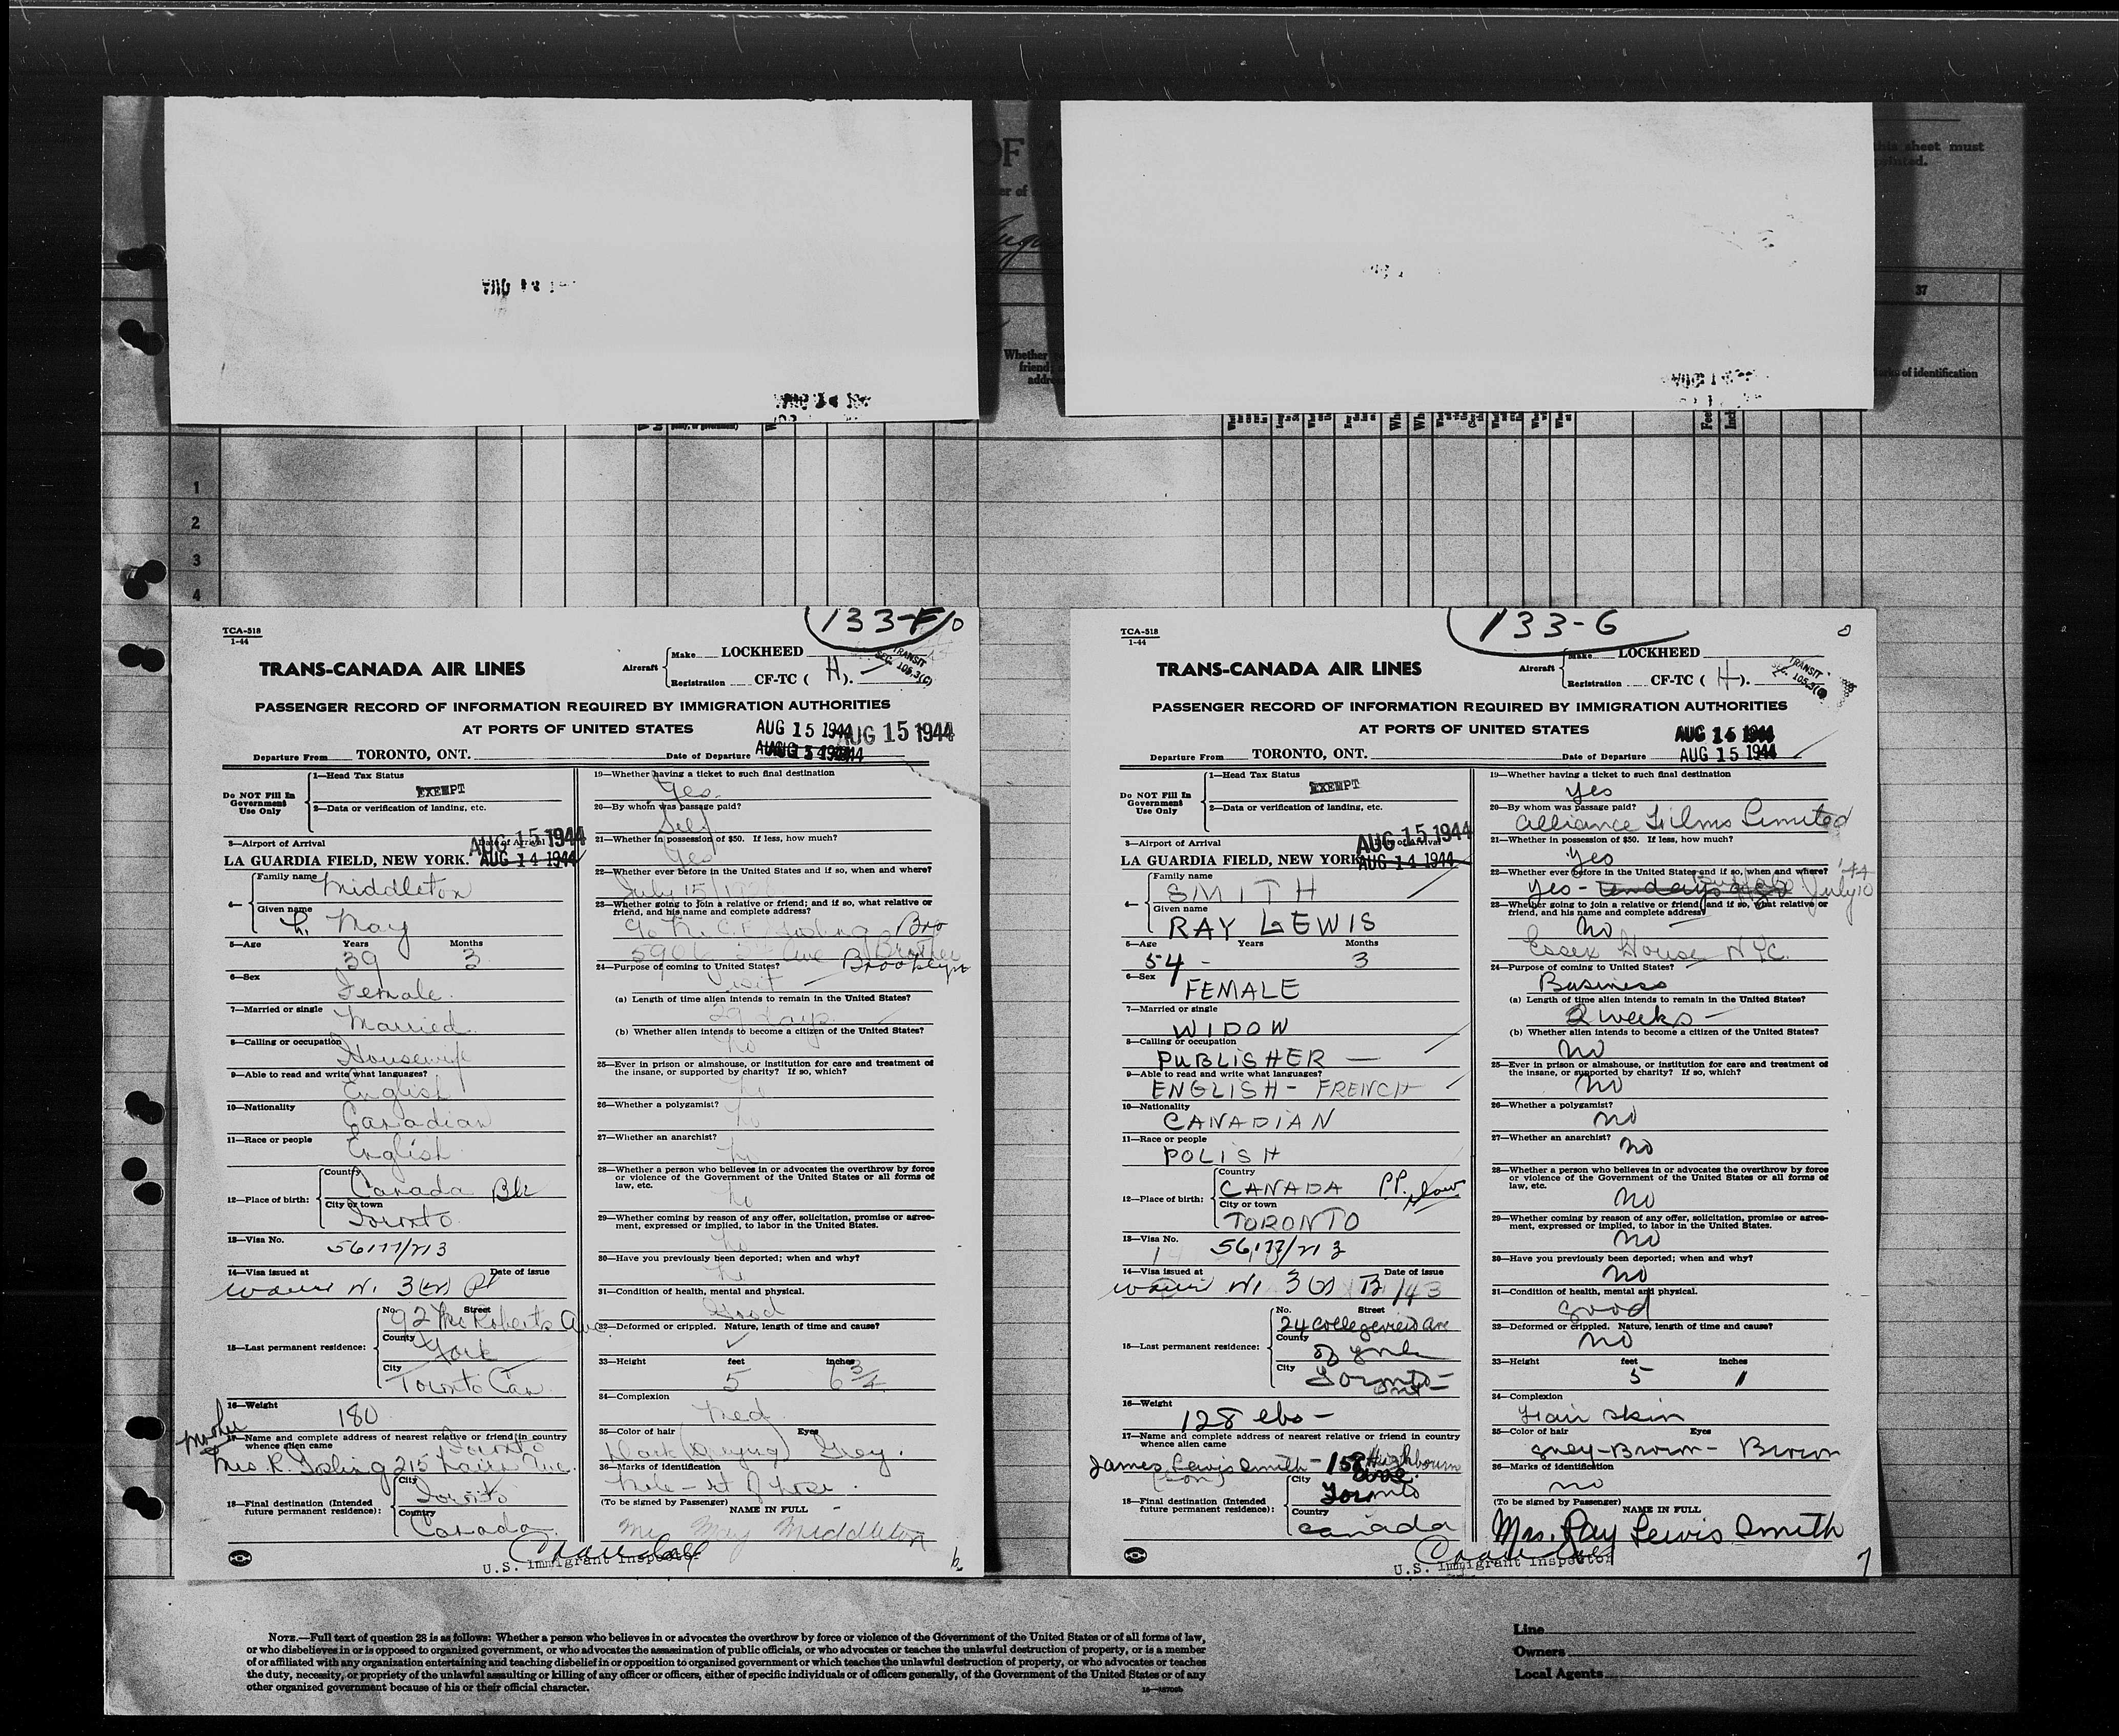 OF
this sheet must
37
Whether
friend;
addre
of identification
1
2
3
4
133-F
TCA-518
1-44
TRANS-CANADA AIR LINES
Aircraft
Make LOCKHEED
Registration CF-TC ( H ).
TRANSIT
SEC. 105.3(C)
PASSENGER RECORD OF INFORMATION REQUIRED BY IMMIGRATION AUTHORITIES
AT PORTS OF UNITED STATES
AUG 15 1944 AUG 15 1944
Departure From TORONTO, ONT. Date of Departure
Do NOT Fill In Government Use Only
1—Head Tax Status
EXEMPT
2—Data or verification of landing, etc.
3—Airport of Arrival Date of Arrival
AUG 15 1944
LA GUARDIA FIELD, NEW YORK. AUG 14 1944
4—
Family name Middleton
Given name May
5—Age Years Months
39 3
6—Sex
Female
7—Married or single
Married
8—Calling or occupation
Housewife
9—Able to read and write what languages?
English
10—Nationality
Canadian
11—Race or people
English
12—Place of birth:
Country
Canada
City or town
Toronto
13—Visa No.
56177/213
14—Visa issued at Date of issue
15—Last permanent residence:
No. Street
92 McRoberts Ave
County
York
City
Toronto Can
16—Weight
180
Mother
17—Name and complete address of nearest relative or friend in country
whence alien came
Toronto
Mrs. R. Gosling 215 Ave.
18—Final destination (Intended
future permanent residence):
City
Toronto
Country
Canada
U.S. Immigrant Inspector
19—Whether having a ticket to such final destination
Yes
20—By whom was passage paid?
Self
21—Whether in possession of $50. If less, how much?
Yes
22—Whether ever before in the United States and if so, when and where?
July 15/
23—Whether going to join a relative or friend; and if so, what relative or
friend, and his name and complete address?
Bro
Ave Brother
24—Purpose of coming to United States? Brooklyn
Visit
(a) Length of time alien intends to remain in the United States?
29 days
(b) Whether alien intends to become a citizen of the United States?
No
25—Ever in prison or almshouse, or institution for care and treatment of
the insane, or supported by charity? If so, which?
No
26—Whether a polygamist?
No
27—Whether an anarchist?
No
28—Whether a person who believes in or advocates the overthrow by force
or violence of the Government of the United States or all forms of
law, etc.
No
29—Whether coming by reason of any offer, solicitation, promise or agree-
ment, expressed or implied, to labor in the United States.
No
30—Have you previously been deported; when and why?
No
31—Condition of health, mental and physical.
Good
32—Deformed or crippled. Nature, length of time and cause?
33—Height feet inches
5 6 3/4
34—Complexion
Med
35—Color of hair Eyes
Dark (Greying) Grey.
36—Marks of identification
Mole - rt of nose.
(To be signed by Passenger)
NAME IN FULL
Mrs May Middleton
133-G
TCA-518
1-44
TRANS-CANADA AIR LINES
Aircraft
Make LOCKHEED
Registration CF-TC ( H ).
TRANSIT
SEC. 105.3(C)
PASSENGER RECORD OF INFORMATION REQUIRED BY IMMIGRATION AUTHORITIES
AT PORTS OF UNITED STATES
AUG 15 1944
Departure From TORONTO, ONT. Date of Departure
Do NOT Fill In Government Use Only
1—Head Tax Status
EXEMPT
2—Data or verification of landing, etc.
3—Airport of Arrival Date of Arrival
AUG 15 1944
LA GUARDIA FIELD, NEW YORK. AUG 14 1944
4—
Family name
SMITH
Given name
RAY LEWIS
5—Age Years Months
54 - 3
6—Sex
FEMALE
7—Married or single
WIDOW
8—Calling or occupation
PUBLISHER —
9—Able to read and write what languages?
ENGLISH - FRENCH
10—Nationality
CANADIAN
11—Race or people
POLISH
12—Place of birth:
Country
CANADA PP.
City or town
TORONTO
13—Visa No.
56177/213
14—Visa issued at Date of issue
15—Last permanent residence:
No. Street
24 Collegeview Ave
County
of York
City
Toronto -
Ont -
16—Weight
128 lbs -
17—Name and complete address of nearest relative or friend in country
whence alien came
James Lewis Smith - 158 Highbourn
(Son) Ave.
18—Final destination (Intended
future permanent residence):
City
Toronto
Country
Canada
U.S. Immigrant Inspector
19—Whether having a ticket to such final destination
Yes
20—By whom was passage paid?
Alliance Films Limited
21—Whether in possession of $50. If less, how much?
Yes
22—Whether ever before in the United States and if so, when and where? '44
Yes - ten days ago Buffalo July 10
23—Whether going to join a relative or friend; and if so, what relative or
friend, and his name and complete address?
No
Essex House NYC.
24—Purpose of coming to United States?
Business
(a) Length of time alien intends to remain in the United States?
2 weeks -
(b) Whether alien intends to become a citizen of the United States?
No
25—Ever in prison or almshouse, or institution for care and treatment of
the insane, or supported by charity? If so, which?
No
26—Whether a polygamist?
No
27—Whether an anarchist?
No
28—Whether a person who believes in or advocates the overthrow by force
or violence of the Government of the United States or all forms of
law, etc.
No
29—Whether coming by reason of any offer, solicitation, promise or agree-
ment, expressed or implied, to labor in the United States.
No
30—Have you previously been deported; when and why?
No
31—Condition of health, mental and physical.
Good
32—Deformed or crippled. Nature, length of time and cause?
No
33—Height feet inches
5 1
34—Complexion
Fair skin
35—Color of hair Eyes
Grey-Brown - Brown
36—Marks of identification
No
(To be signed by Passenger)
NAME IN FULL
Mrs. Ray Lewis Smith
7
NOTE.—Full text of question 28 is as follows: Whether a person who believes in or advocates the overthrow by force or violence of the Government of the United States or of all forms of law,
or who disbelieves in or is opposed to organized government, or who advocates the assassination of public officials, or who advocates or teaches the unlawful destruction of property, or is a member
of or affiliated with any organization entertaining and teaching disbelief in or opposition to organized government or which teaches the unlawful destruction of property, or who advocates or teaches
the duty, necessity, or propriety of the unlawful assaulting or killing of any officer or officers, either of specific individuals or of officers generally, of the Government of the United States or of any
other organized government because of his or their official character.
Line
Owners
Local Agents